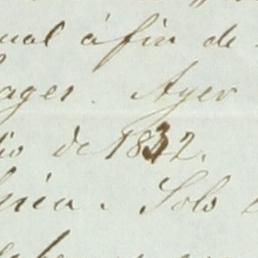 ual áfin de
ages. Ayer
io de 1832.
Solo